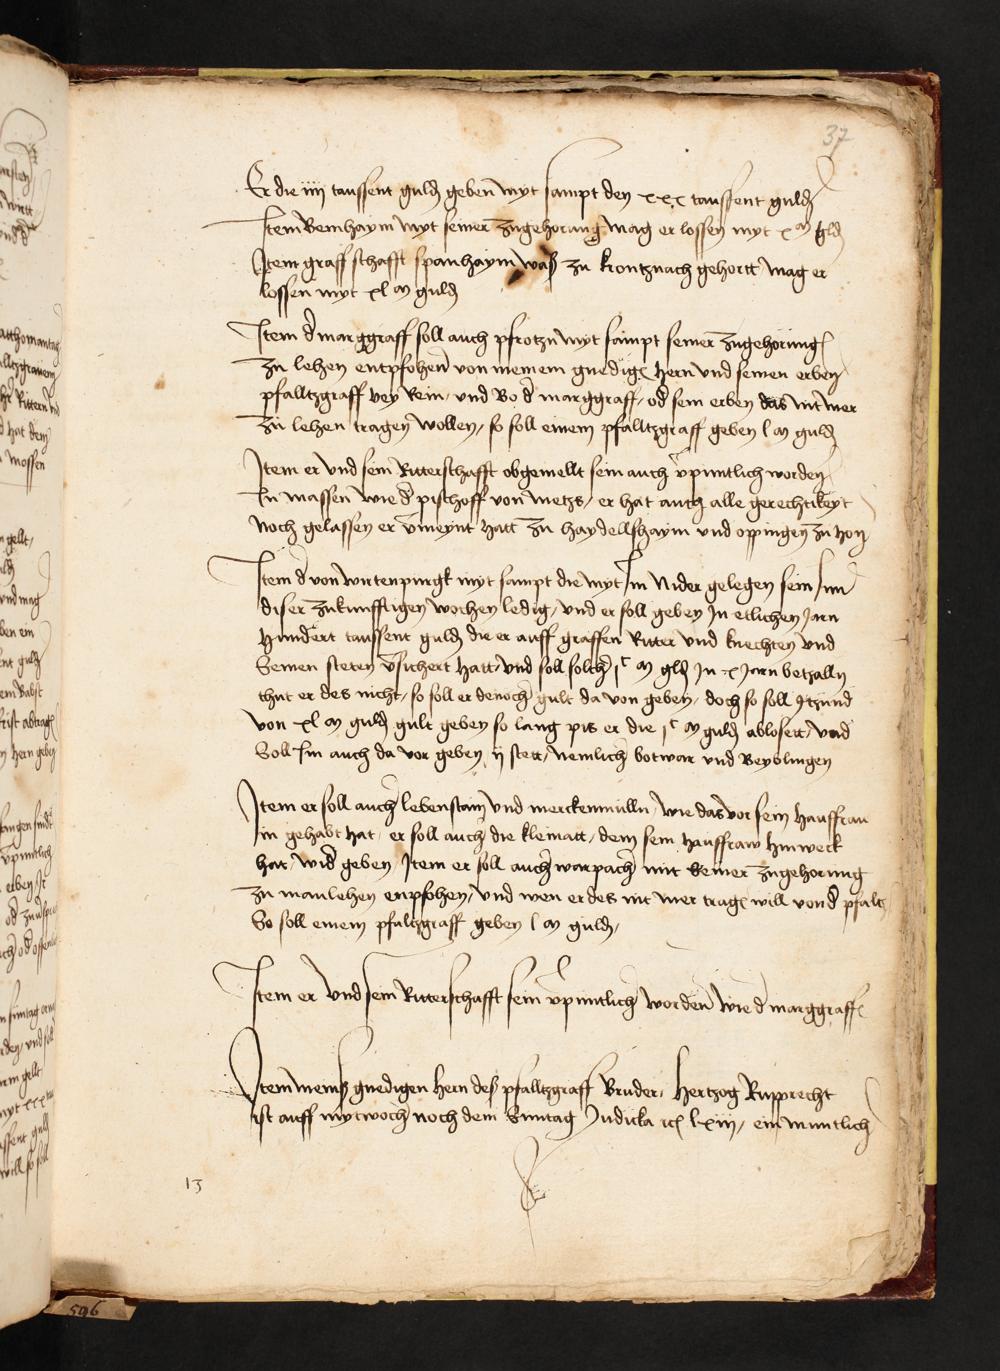 37
Er die iiij taussent guld geben myt sampt den xxx taussent guld
Item Bernhaym myt seiner zugehorung mag er lossen myt x m gld
Item graffschafft spanhaym was zu krontznach gehortt mag er
lossen myt xl m guld
Item d marggraff soll auch pfrotzn myt sampt seiner zugehorung
zu lehen entpfohen von meinem gnedigen hern und seinen erben
pfalltzgraff bey Rein, und Wo d marggraff, od sein erben das nit mer
zu lehen tragen wollen, so soll einem pfalltzgraff geben l m guld
Item er und sein Ritterschafft obgemellt sein auch vpuntlich worden
In massen wie d pischoff von metzs, er hat auch alle gerechtikeyt
noch gelassen er vmeynt hatt zu haydellshaym und oppingen zu hon
Item d von wirtenpurgk myt sampt die myt Im Nider gelegen sein sein
diser zukunfftigen wochen ledig, und er soll geben In etlichen Jarn
Hundert taussent guld die er auff graffen Ritter und knechten und
Seinen steten vsichert hatt, und soll solch j c m gld In x Jarn betzalln
thut er des nicht, so soll er denoch gult da von geben, doch so soll Itzund
von xl m guld gult geben so lang pis er die j c m guld ablosett, und
Soll Im auch da vor geben ij stett, nemlich botwar und Beyolingen
Item er soll auch lebenstain und merckenmulln, wie das vor sein haussfrau
in gehabt hat, er soll auch die kleinatt, dem sein haussfraw hinweck
hat, wid geben, Item er soll auch warpach mit seiner zugehorung
zu manlehen enpfohen, und wen er des nit mer trag will von d pfaltz
So soll einem pfalltzgraff geben l m guld,
Item er und sein Ritterschafft sein vpuntlich worden wie d marggraff
Item meins gnedigen hern des pfalltzgraff Bruder, Hertzog Rupprecht
ist auff mytwoch noch dem Suntag Judicka lxiij, ein muntlich
13
596